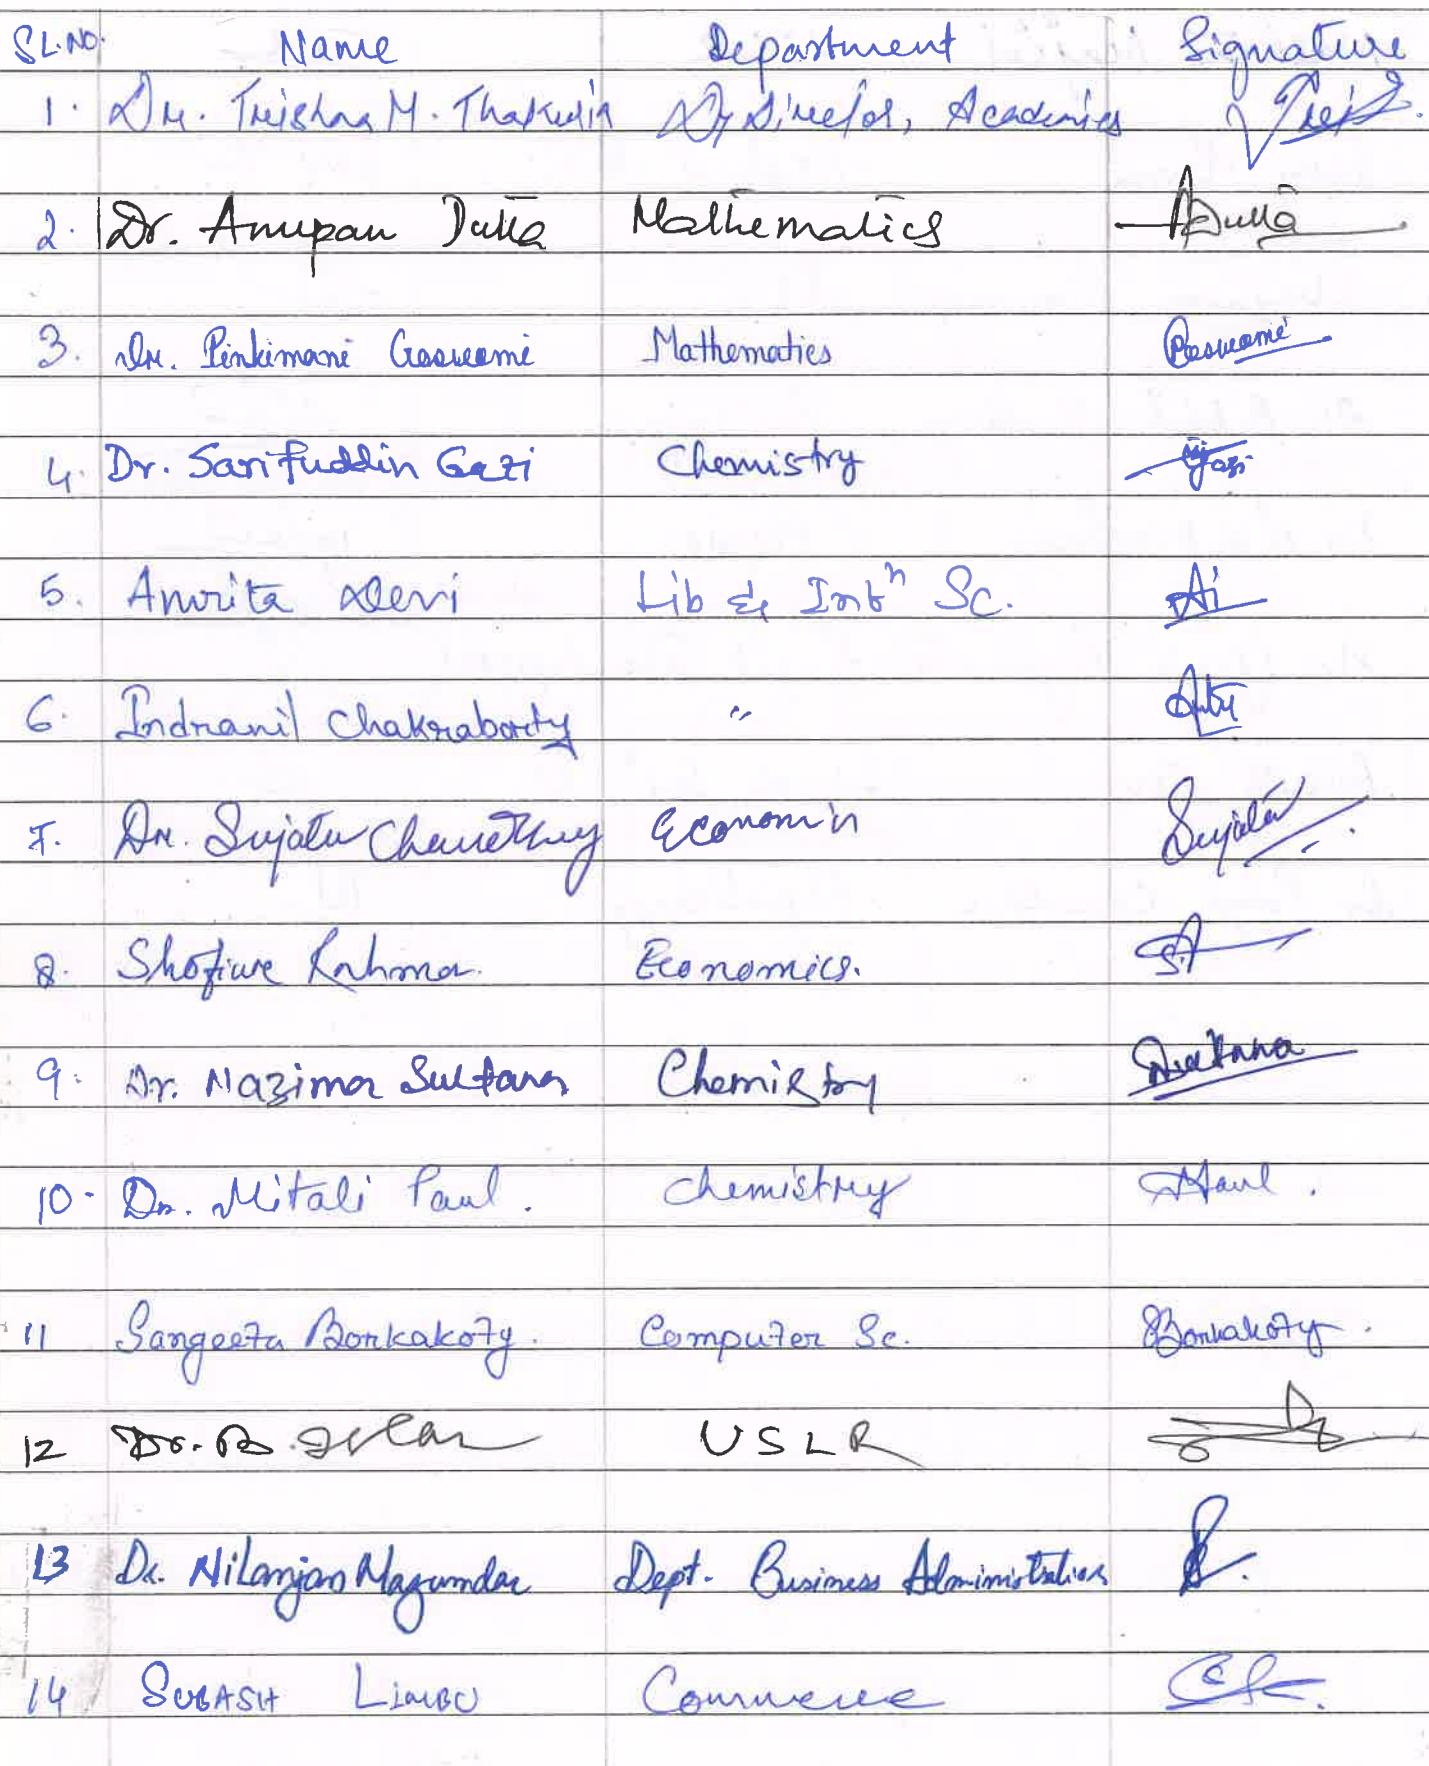 SL.NO. Name Department Signature
1. Dr. Trishna M. Thakuria Dy Director, Academics
2. Dr. Anupam Dutta Mathematics ADutta
3. Dr. Pinkimani Goswami Mathematics Goswami
4. Dr. Sarifuddin Gazi Chemistry Gazi
5. Amrita Devi Lib & Infn Sc.
6. Indranil Chakraborty "
7. Dr. Sujata Chaudhury Economics Sujata
8. Rahman Economics.
9. Dr. Nazima Sultana Chemistry Sultana
10. Dr. Mitali Paul. Chemistry Paul.
11 Sangeeta Borkakoty. Computer Sc. Borkakoty.
12 Dr. B. USLR
13 Dr. Nilanjan Mazumdar Dept. Business Administration
14 SUBASH LIMBU Commerce